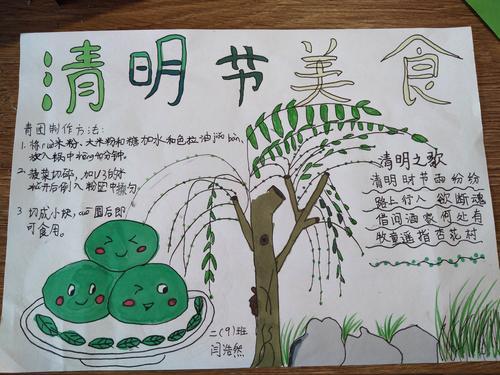 清明节美食
青团制作方法:
1. 将nuò米粉、大米粉和糖加水和色拉油jiǎo bàn、
放入锅中zhēng 10分钟。
2. 菠菜切碎,加1/3的水
拌开后倒入粉团中揉匀
3. 切成小块,cuō圆后即
可食用。
清明之歌
清明时节雨纷纷
路上行人欲断魂
借问酒家何处有
牧童遥指杏花村
二(9)班
闫浩然